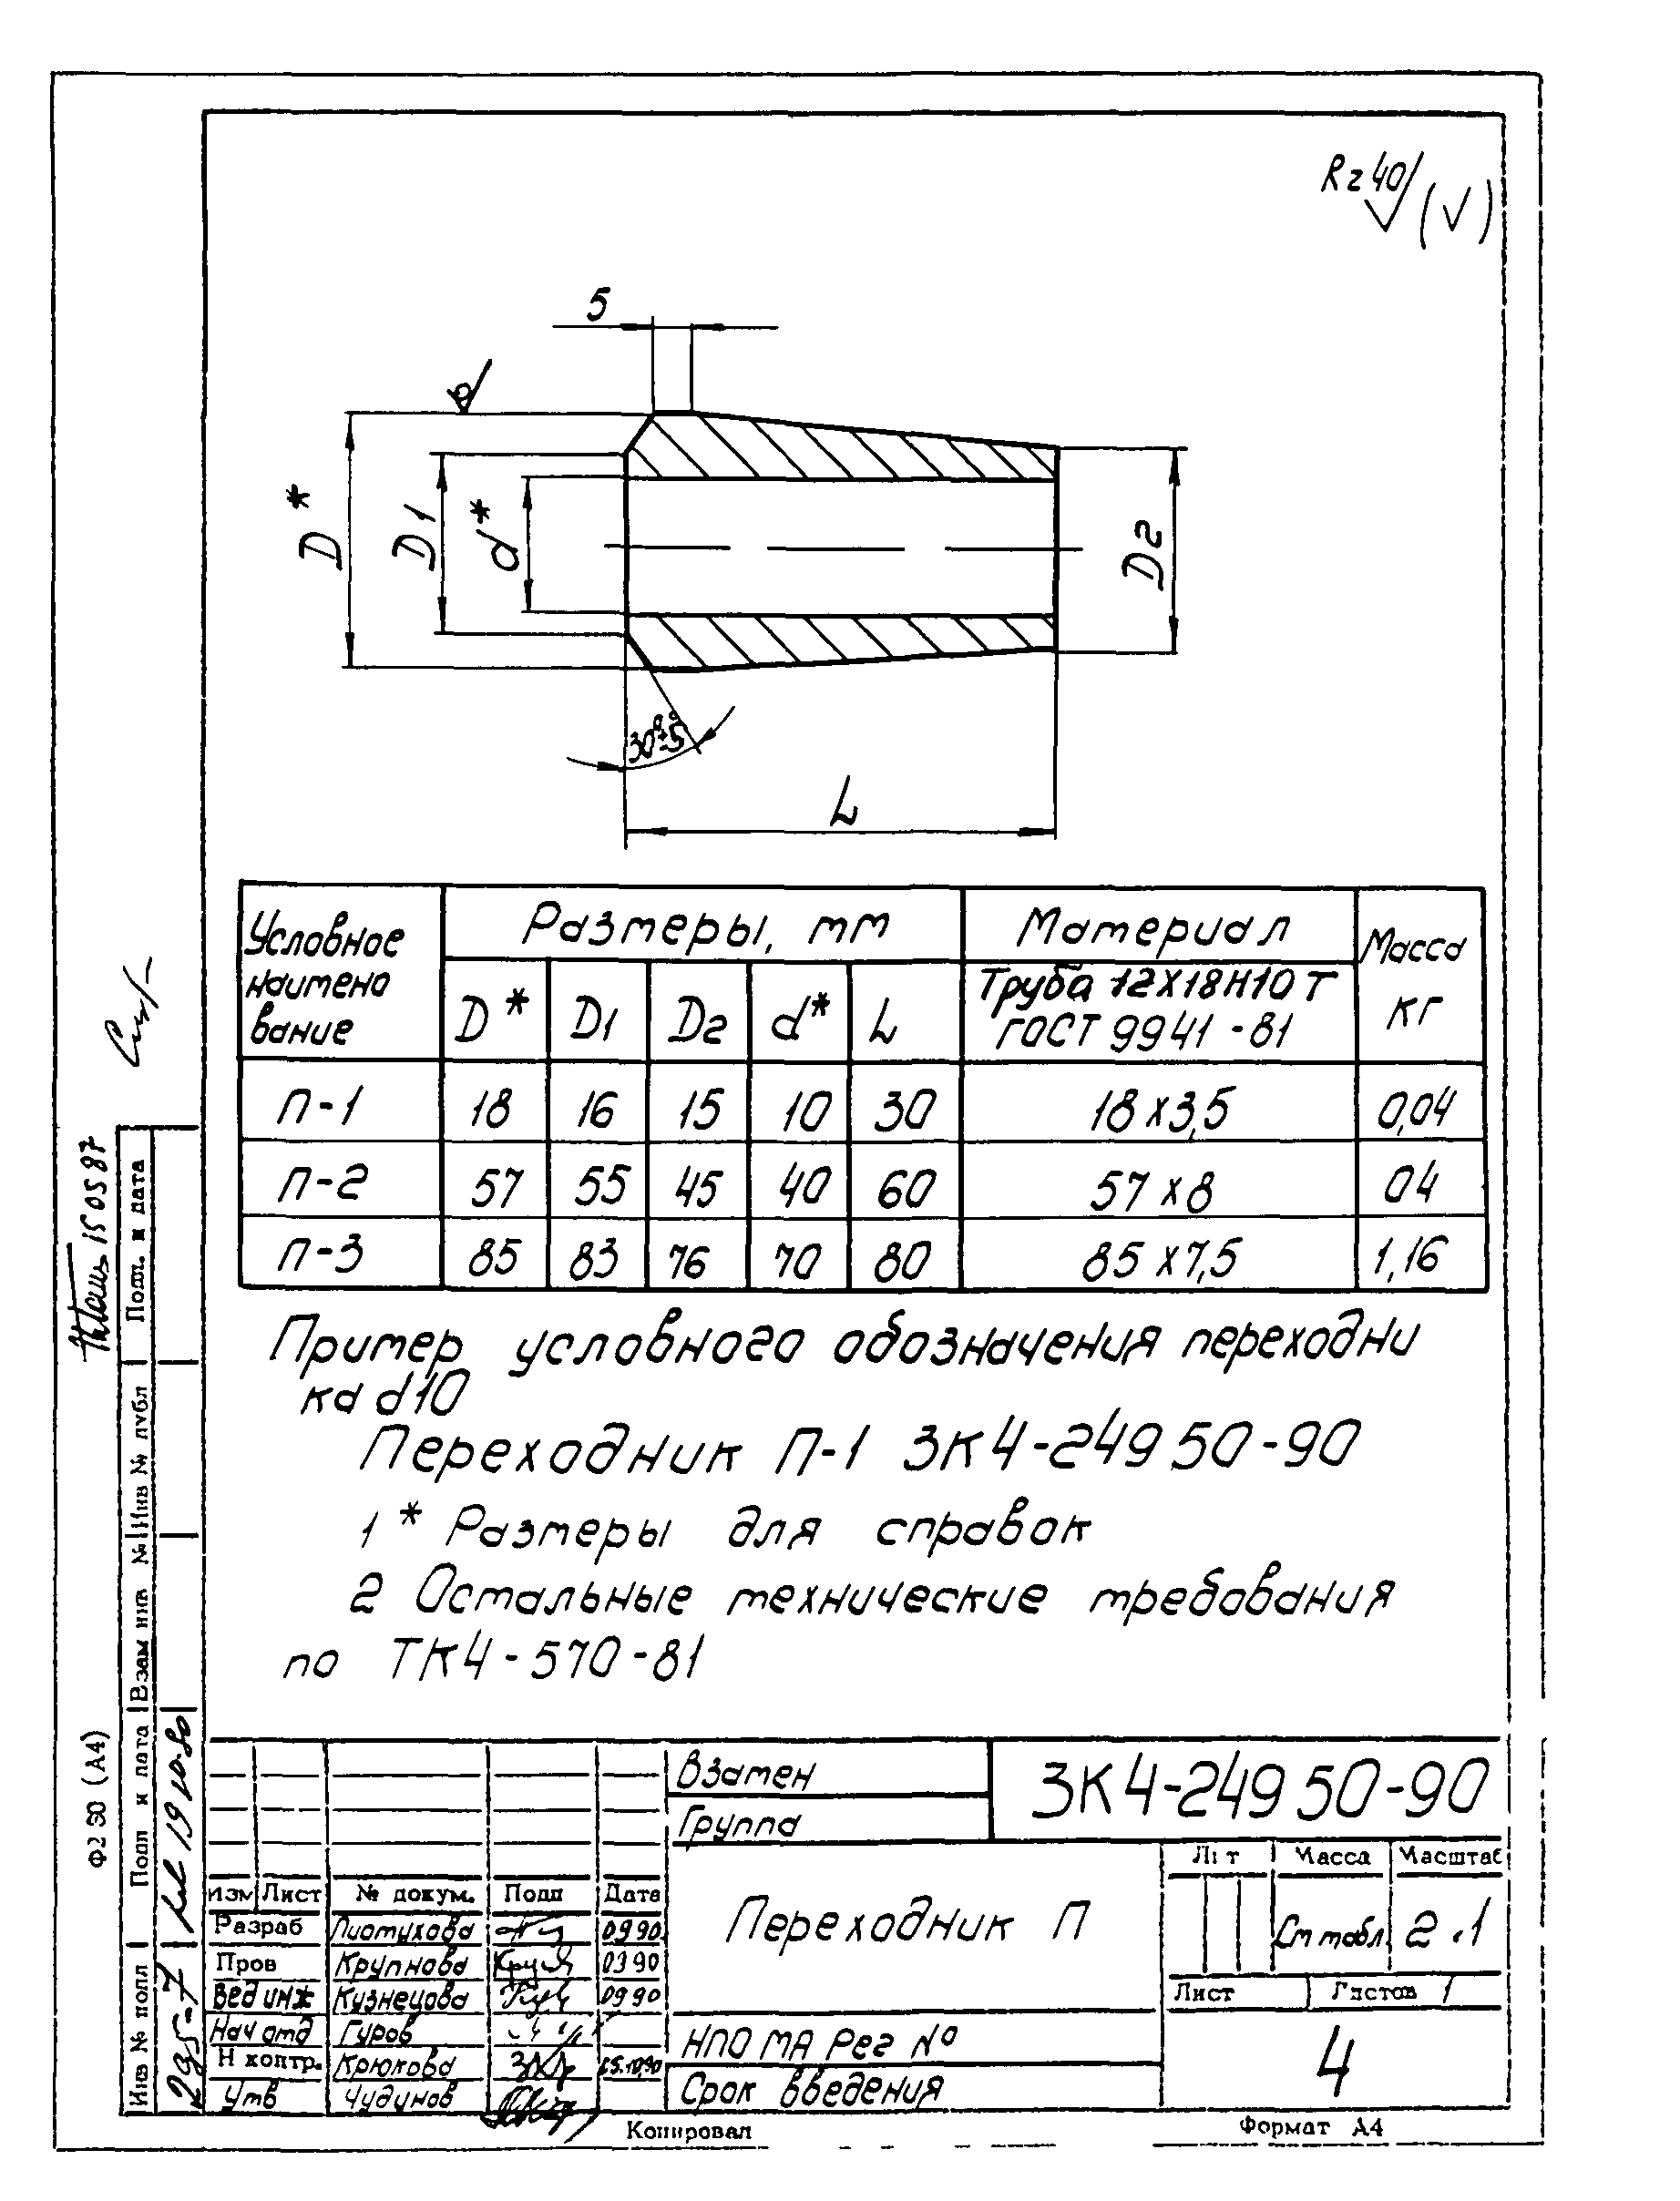 Rz 40 (√)
5
D*
D1
d*
D2
30°±5°
L
Условное наимено вание
Размеры, мм
Материал
Масса кг
D* D1 D2 d* L
Труба 12Х18Н10Т
ГОСТ 9941-81
П-1 18 16 15 10 30 18х3,5 0,04
П-2 57 55 45 40 60 57х8 04
П-3 85 83 76 70 80 85х7,5 1,16
Пример условного обозначения переходни
ка d10
Переходник П-1 ЗК4-249 50-90
1 * Размеры для справок
2 Остальные технические требования
по ТК4-570-81
Взамен
Группа
ЗК4-249 50-90
Переходник П
Лит Масса Масштаб
См табл. 2.1
Лист Листов 1
НПО МА Рег №
Срок введения
4
Изм Лист № докум. Подп Дата
Разраб 09 90
Пров Крупнова 03 90
Вед инж Кузнецова 09 90
Нач отд Гуров
Н контр. Крюкова
Утв Чудинов
Копировал
Формат А4
Подп. и дата
Инв № дубл
Взам инв №
Подп и дата
Инв № подл
295-7
15 05 87
Ф2 30 (А4)